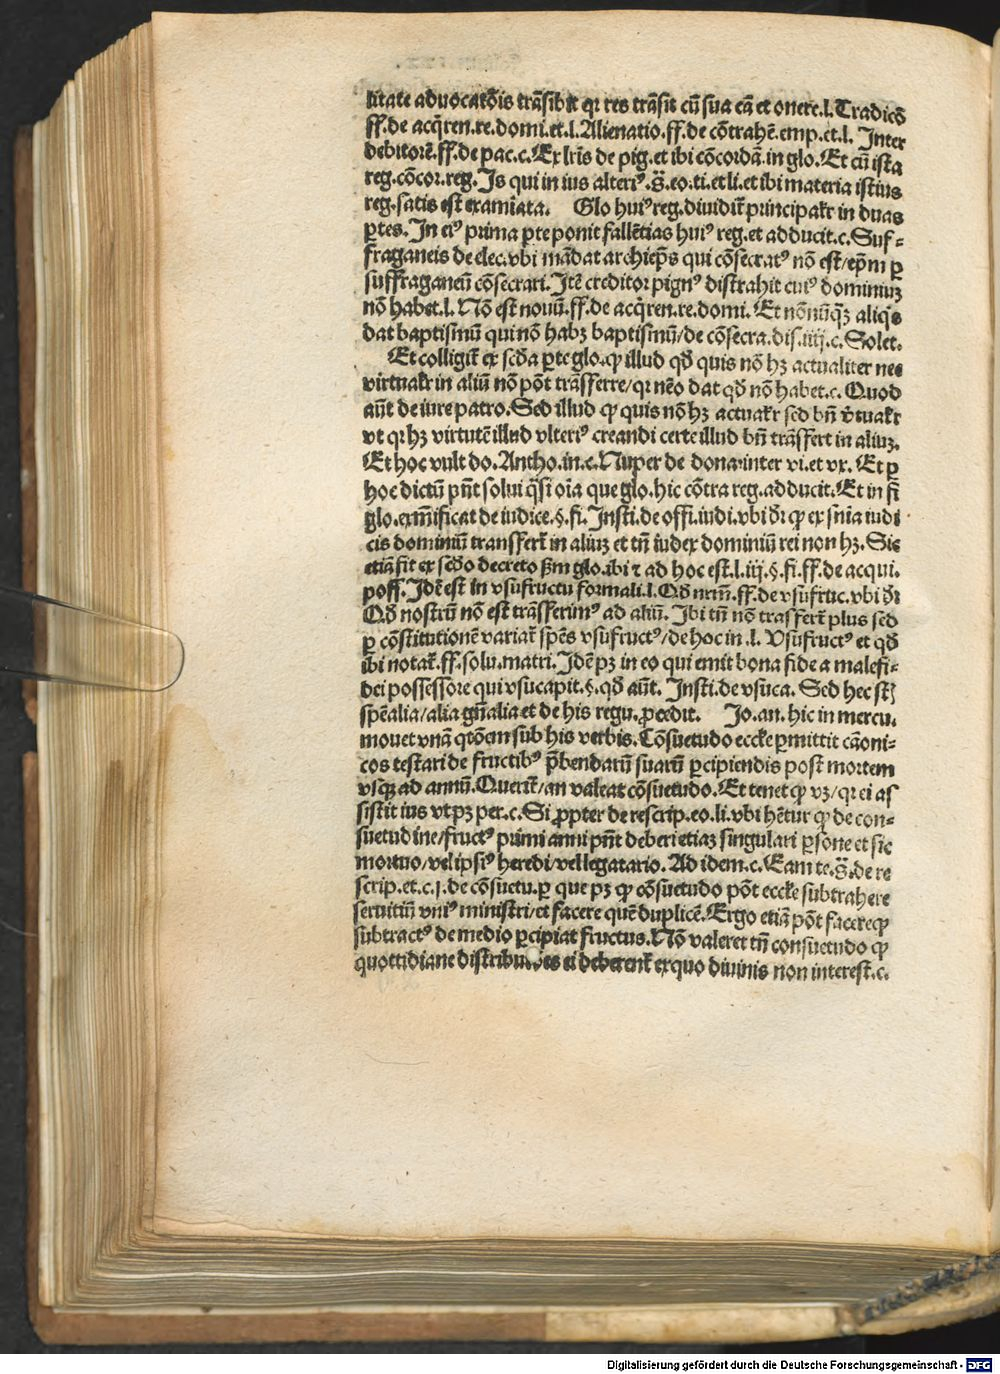 litate aduocatōis trāsibit qꝛ res trāsit cū sua cā et onere.l.Tradicō
ff.de acq̄ren.re.domi.et.l.Alienatio.ff.de cōtrahē.emp.et.l. Inter
debitorē.ff.de pac.c.Ex lr̄is de pig.et ibi cōcordā.in glo.Et cū ista
reg.cōcor.reg.Is qui in ius alteriꝰ.s̄.eo.ti.et li.et ibi materia istius
reg.satis est examīata. Glo huiꝰ reg.diuidit̄ principalr̄ in duas
ꝑtes.In eiꝰ prima ꝑte ponit fallētias huiꝰ reg.et adducit.c.Suf⸗
fraganeis de elec.vbi mādat archiep̄s qui cōsecratꝰ nō est/ep̄m ꝑ
suffraganeū cōsecrari.Itē creditor pignꝰ distrahit cuiꝰ dominiuꝫ
nō habet.l.Nō est nouū.ff.de acq̄ren.re.domi.Et nōnūq̄ꝫ aliq̄s
dat baptismū qui nō habꝫ baptismū/de cōsecra.dis.iiij.c.Solet.
Et colligit̄ ex sc̄da ꝑte glo.ꝙ illud qd̄ quis nō hꝫ actualiter nec
virtualr̄ in aliū nō pōt trāsferre/qꝛ nēo dat qd̄ nō habet.c.Quod
aūt de iure patro.Sed illud ꝙ quis nō hꝫ actualr̄ sed bn̄ v̄tualr̄
vt qꝛ hꝫ virtutē illud vlteriꝰ creandi certe illud bn̄ trāsfert in aliuꝫ.
Et hoc vult do.Antho.in.c.Nuper de dona.inter vi.et vx. Et ꝑ
hoc dictū pn̄t solui q̄si oīa que glo.hic cōtra reg.adducit.Et in fi
glo.exm̄ificat de iudice.§.fi.Insti.de offi.iudi.vbi dr̄ ꝙ ex sn̄ia iudi
cis dominiū transfert̄ in aliuꝫ et tn̄ iudex dominiū rei non hꝫ.Sic
etiā fit ex sc̄do decreto sm̄ glo.ibi ⁊ ad hoc est.l.iij.§.fi.ff.de acqui.
poss.Idē est in vsufructu formali.l.Qd̄ nrm̄.ff.de vsufruc.vbi dr̄
Qd̄ nostrū nō est trāsferimꝰ ad aliū. Ibi tn̄ nō trasfert̄ plus sed
ꝑ cōstitutionē variat̄ spēs vsufructꝰ/de hoc in .l. Vsufructꝰ et qd̄
ibi notat̄.ff.solu.matri.Idē pꝫ in eo qui emit bona fide a malefi⸗
dei possessore qui vsucapit.§.qd̄ aūt. Insti.de vsuca. Sed hec st̄
spēalia/alia gn̄alia et de his regu.ꝓcedit. Jo.an.hic in mercu.
mouet vnā qtōem sub his verbis.Cōsuetudo eccl̄e ꝑmittit cāoni⸗
cos testari de fructibꝰ p̄bendarū suarū ꝑcipiendis post mortem
vsqꝫ ad annū.Querit̄/an valeat cōsuetudo.Et tenet ꝙ vꝫ/qꝛ ei as
sistit ius vt pꝫ per.c.Si ꝓpter de rescrip.eo.li.vbi hētur ꝙ de con⸗
suetudine/fructꝰ primi anni pn̄t deberi etiaꝫ singulari ꝑsone et sic
mortuo/vel ipsiꝰ heredi/vel legatario. Ad idem.c.Eam te.s̄.de re
scrip.et.c.j.de cōsuetu.ꝑ que pꝫ ꝙ cōsuetudo pōt eccl̄e subtrahere
seruitiū vniꝰ ministri/et facere quē duplicē.Ergo etiā pōt facere ꝙ
subtractꝰ de medio ꝑcipiat fructus.Nō valeret tn̄ consuetudo ꝙ
quottidiane distributōes ei deberent̄ ex quo diuinis non interest.c.
Digitalisierung gefördert durch die Deutsche Forschungsgemeinschaft - DFG